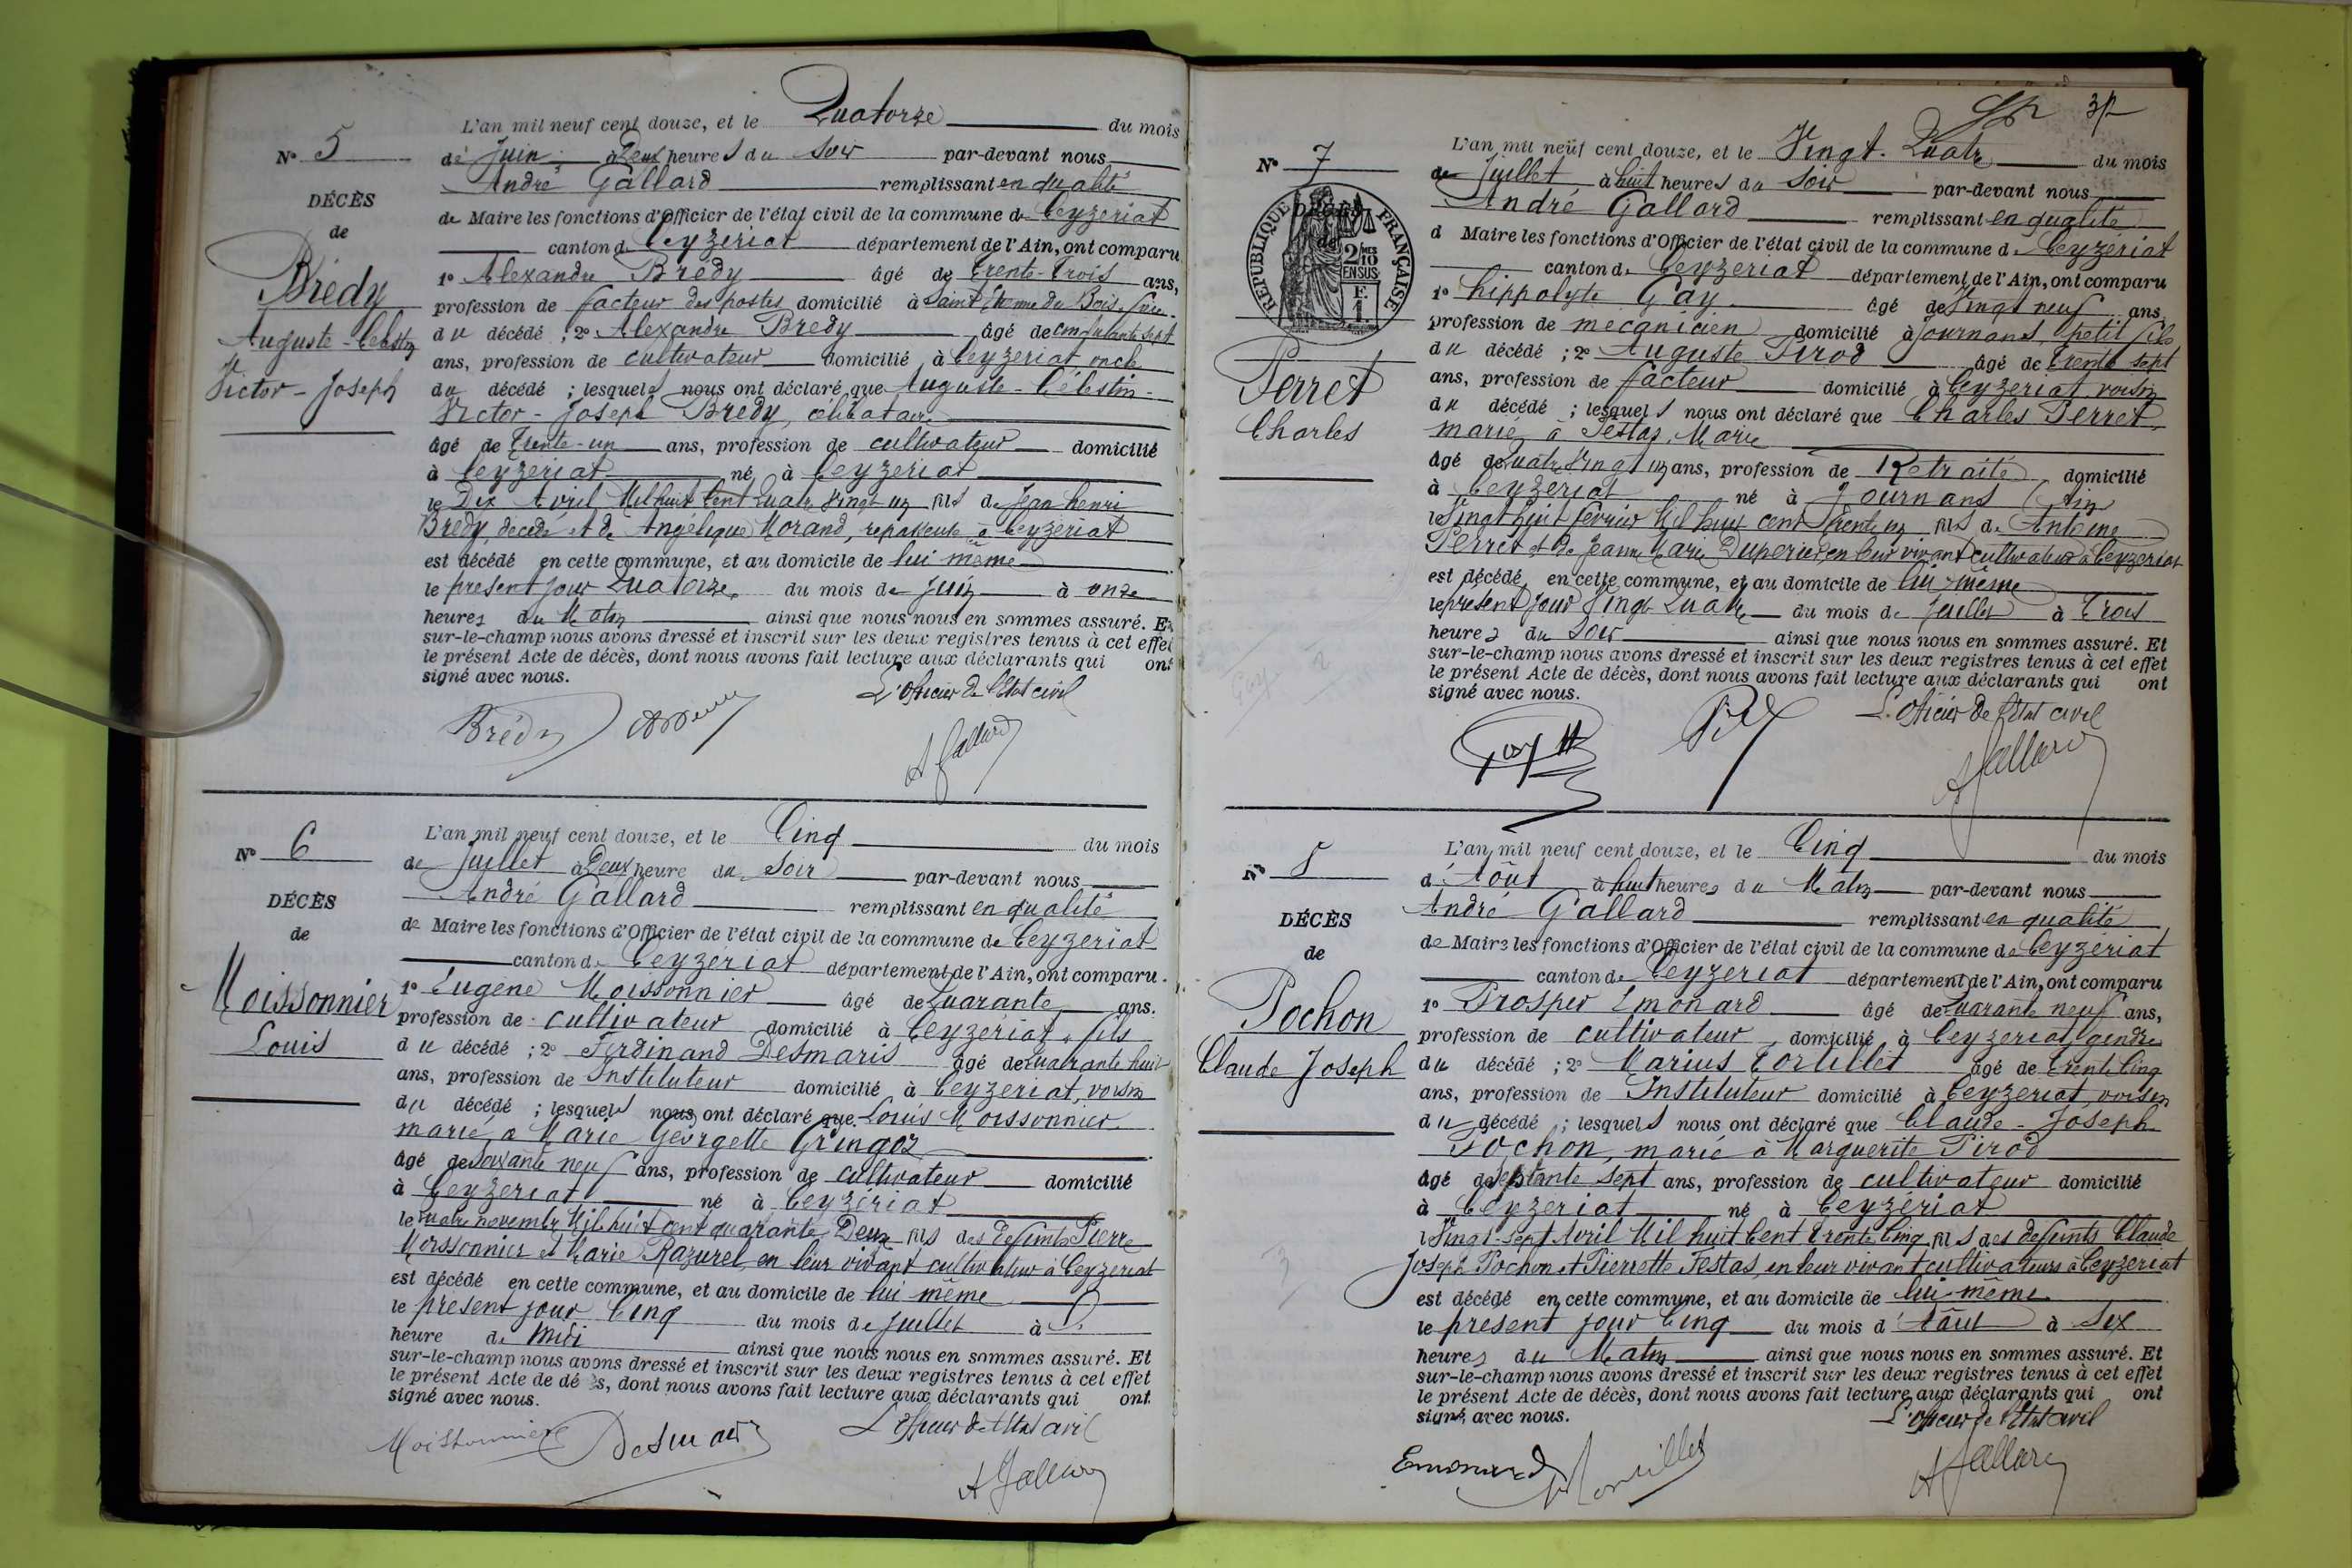 L'an mil neuf cent douze, et le Quatorze du mois
N° 5
de Juin à Deux heures du Soir par-devant nous
André Gallard remplissant en qualité
DÉCÈS
de Maire les fonctions d'Officier de l'état civil de la commune de Ceyzériat
de
canton de Ceyzériat département de l'Ain, ont comparu
Brédy
Auguste-Célestin
Victor-Joseph
1° Alexandre Brédy âgé de trente-trois ans,
profession de facteur des postes domicilié à Saint Etienne du Bois, frère
du décédé ; 2° Alexandre Brédy âgé de cinquante sept
ans, profession de cultivateur domicilié à Ceyzériat, oncle
du décédé ; lesquels nous ont déclaré que Auguste-Célestin-
Victor-Joseph Brédy, célibataire
âgé de Trente-un ans, profession de cultivateur domicilié
à Ceyzériat né à Ceyzériat
le Dix Avril Mil huit Cent Quatre Vingt un fils de Jean henri
Brédy, décédé et de Angélique Morand, repasseuse à Ceyzériat
est décédé en cette commune, et au domicile de lui même
le présent jour Quatorze du mois de Juin à onze
heures du Matin ainsi que nous nous en sommes assuré. Et
sur-le-champ nous avons dressé et inscrit sur les deux registres tenus à cet effet
le présent Acte de décès, dont nous avons fait lecture aux déclarants qui ont
signé avec nous.
L'officier de l'Etat civil
Brédy
A Gallard
L'an mil neuf cent douze, et le Cinq du mois
N° 6
de Juillet à Deux heure du Soir par-devant nous
André Gallard remplissant en qualité
DÉCÈS
de Maire les fonctions d'Officier de l'état civil de la commune de Ceyzériat
de
canton de Ceyzériat département de l'Ain, ont comparu
Moissonnier
Louis
1° Eugène Moissonnier âgé de Quarante ans.
profession de cultivateur domicilié à Ceyzériat, fils
du décédé ; 2° Ferdinand Desmaris âgé de Quarante huit
ans, profession de Instituteur domicilié à Ceyzériat, voisin
du décédé ; lesquels nous ont déclaré que Louis Moissonnier
marié à Marie Georgette Gringoz
âgé de Soixante neuf ans, profession de cultivateur domicilié
à Ceyzériat né à Ceyzériat
le quatre novembre Mil huit cent quarante Deux fils des défunts Pierre
Moissonnier et Marie Razurel, en leur vivant cultivateur à Ceyzériat
est décédé en cette commune, et au domicile de lui même
le présent jour Cinq du mois de Juillet à
heure de Midi ainsi que nous nous en sommes assuré. Et
sur-le-champ nous avons dressé et inscrit sur les deux registres tenus à cet effet
le présent Acte de décès, dont nous avons fait lecture aux déclarants qui ont
signé avec nous.
Moissonnier Desmaris L'officier de l'Etat civil
A Gallard
L'an mil neuf cent douze, et le Vingt-Quatre du mois
N° 7
de Juillet à huit heures du Soir par-devant nous
André Gallard remplissant en qualité
RÉPUBLIQUE FRANÇAISE
2/10 EN SUS
F. 1.
d Maire les fonctions d'Officier de l'état civil de la commune de Ceyzériat
canton de Ceyzériat département de l'Ain, ont comparu
Perret
Charles
1° hippolyte Gay âgé de Vingt neuf ans,
profession de mécanicien domicilié à Journans, petit fils
du décédé ; 2° Auguste Pirod âgé de trente sept
ans, profession de facteur domicilié à Ceyzériat voisin
du décédé ; lesquels nous ont déclaré que Charles Perret,
marié à Festas, Marie
âgé de Quatre Vingt un ans, profession de Retraité domicilié
à Ceyzériat né à Journans (Ain
le Vingt huit février Mil huit cent trente un fils de Antoine
Perret et de Jeanne Marie Duperier, en leur vivant cultivateurs à Ceyzériat
est décédé en cette commune, et au domicile de lui-même
le présent jour Vingt Quatre du mois de Juillet à trois
heures du Soir ainsi que nous nous en sommes assuré. Et
sur-le-champ nous avons dressé et inscrit sur les deux registres tenus à cet effet
le présent Acte de décès, dont nous avons fait lecture aux déclarants qui ont
signé avec nous.
L'officier de l'Etat civil
Gay H
A Gallard
L'an mil neuf cent douze, et le Cinq du mois
N° 8
d'Août à huit heures du Matin par-devant nous
André Gallard remplissant en qualité
DÉCÈS
de Maire les fonctions d'Officier de l'état civil de la commune de Ceyzériat
de
canton de Ceyzériat département de l'Ain, ont comparu
Pochon
Claude Joseph
1° Prosper Emonard âgé de Quarante neuf ans,
profession de cultivateur domicilié à Ceyzériat, gendre
du décédé ; 2° Marius Tortillet âgé de trente Cinq
ans, profession de Instituteur domicilié à Ceyzériat, voisin
du décédé ; lesquels nous ont déclaré que Claude-Joseph
Pochon, marié à Marguerite Pirod
âgé de Septante sept ans, profession de cultivateur domicilié
à Ceyzériat né à Ceyzériat
le Vingt-sept Avril Mil huit Cent trente Cinq fils des défunts Claude
Joseph Pochon et Pierrette Festas, en leur vivant cultivateurs à Ceyzériat
est décédé en cette commune, et au domicile de lui-même
le présent jour Cinq du mois d'Août à Six
heures du Matin ainsi que nous nous en sommes assuré. Et
sur-le-champ nous avons dressé et inscrit sur les deux registres tenus à cet effet
le présent Acte de décès, dont nous avons fait lecture aux déclarants qui ont
signé avec nous.
L'officier de l'Etat civil
Emonard
A Gallard